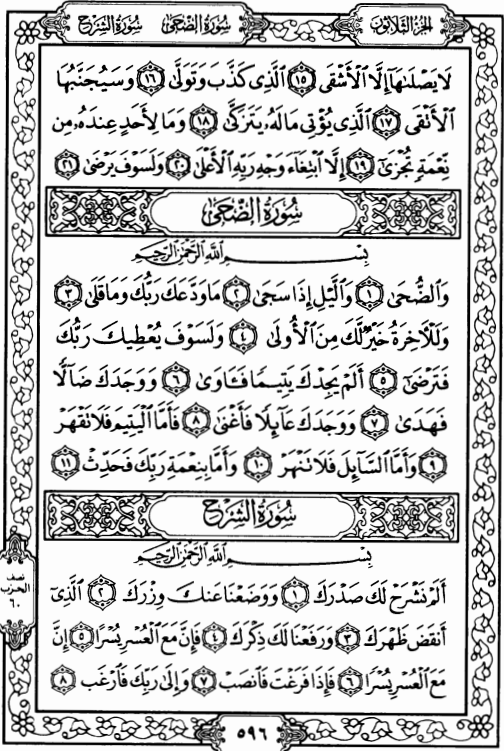 الجزء الثلاثون
سورة الضحى
سورة الشرح
لَا يَصْلَىٰهَآ إِلَّا ٱلْأَشْقَى ١٥ ٱلَّذِى كَذَّبَ وَتَوَلَّىٰ ١٦ وَسَيُجَنَّبُهَا
ٱلْأَتْقَى ١٧ ٱلَّذِى يُؤْتِى مَالَهُۥ يَتَزَكَّىٰ ١٨ وَمَا لِأَحَدٍ عِندَهُۥ مِن
نِّعْمَةٍ تُجْزَىٰٓ ١٩ إِلَّا ٱبْتِغَآءَ وَجْهِ رَبِّهِ ٱلْأَعْلَىٰ ٢٠ وَلَسَوْفَ يَرْضَىٰ ٢١
سُورَةُ الضُّحَى
بِسْمِ ٱللَّهِ ٱلرَّحْمَٰنِ ٱلرَّحِيمِ
وَٱلضُّحَىٰ ١ وَٱلَّيْلِ إِذَا سَجَىٰ ٢ مَا وَدَّعَكَ رَبُّكَ وَمَا قَلَىٰ ٣
وَلَلْأٓخِرَةُ خَيْرٌ لَّكَ مِنَ ٱلْأُولَىٰ ٤ وَلَسَوْفَ يُعْطِيكَ رَبُّكَ
فَتَرْضَىٰٓ ٥ أَلَمْ يَجِدْكَ يَتِيمًا فَـَٔاوَىٰ ٦ وَوَجَدَكَ ضَآلًّا
فَهَدَىٰ ٧ وَوَجَدَكَ عَآئِلًا فَأَغْنَىٰ ٨ فَأَمَّا ٱلْيَتِيمَ فَلَا تَقْهَرْ
٩ وَأَمَّا ٱلسَّآئِلَ فَلَا تَنْهَرْ ١٠ وَأَمَّا بِنِعْمَةِ رَبِّكَ فَحَدِّثْ ١١
سُورَةُ الشَّرْحِ
بِسْمِ ٱللَّهِ ٱلرَّحْمَٰنِ ٱلرَّحِيمِ
أَلَمْ نَشْرَحْ لَكَ صَدْرَكَ ١ وَوَضَعْنَا عَنكَ وِزْرَكَ ٢ ٱلَّذِىٓ
أَنقَضَ ظَهْرَكَ ٣ وَرَفَعْنَا لَكَ ذِكْرَكَ ٤ فَإِنَّ مَعَ ٱلْعُسْرِ يُسْرًا ٥ إِنَّ
مَعَ ٱلْعُسْرِ يُسْرًا ٦ فَإِذَا فَرَغْتَ فَٱنصَبْ ٧ وَإِلَىٰ رَبِّكَ فَٱرْغَب ٨
نصف
الحزب
٦٠
٥٩٦